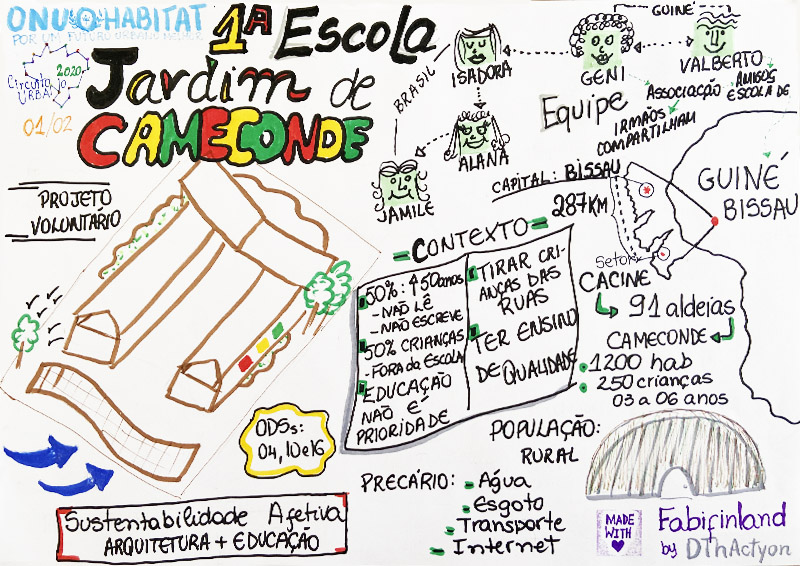 ONU HABITAT
POR UM FUTURO URBANO MELHOR
Circuito
URBANO
2020
01/02
1ª Escola
Jardim de
CAMECONDE
PROJETO
VOLUNTÁRIO
GUINÉ
BRASIL
ISADORA
GENI
VALBERTO
ALANA
JAMILE
Equipe
Associação AMIGOS
ESCOLA DE
IRMÃOS
COMPARTILHAM
CAPITAL: BISSAU
287KM
GUINÉ
BISSAU
Setor
CACINE
91 aldeias
CAMECONDE
1200 hab
250 crianças
03 a 06 anos
CONTEXTO
50%: ↑50 anos
- NÃO LÊ
- NÃO ESCREVE
50% CRIANÇAS
- FORA DA ESCOLA
EDUCAÇÃO
NÃO É
PRIORIDADE
TIRAR CRI-
ANÇAS DAS
RUAS
TER ENSINO
DE QUALIDADE
ODSs:
04, 10 e 16
POPULAÇÃO:
RURAL
PRECÁRIO: - Água
- Esgoto
- Transporte
- Internet
Sustentabilidade Afetiva
ARQUITETURA + EDUCAÇÃO
MADE
WITH
Fabifinland
by DThActyon